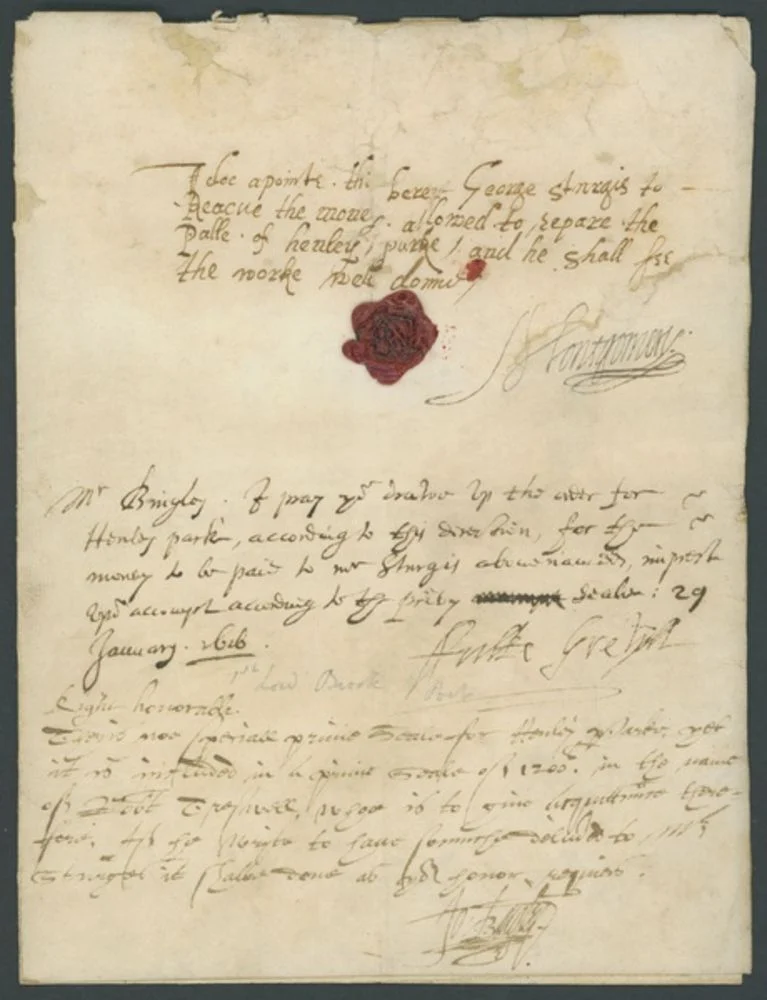 I doe apointe. the berer George sturgis to
Reacue the money. allowed to, repare the
Palle. of henley, parke, and he shall see
the worke well donne
Montgomery.
Mr Bingley. I pray yo drawe up the order for
Henley park, according to this direction, for the
money to be paid to mr Sturgis abovenamed, imprest
upon accompt according to the privy seale: 29
January. 1616.
Fulke Grevill
1st Lord Brook
Right honorable.
There is noe speciall privie Seale for Henley Parke, yet
it is included in a privie Seale of 1200. in the name
of Robt Treswell, whoe is to give acquittance there-
fore. he wryte to have somuche delivd to Mr
Sturges it shalbe done as yor honor requires.